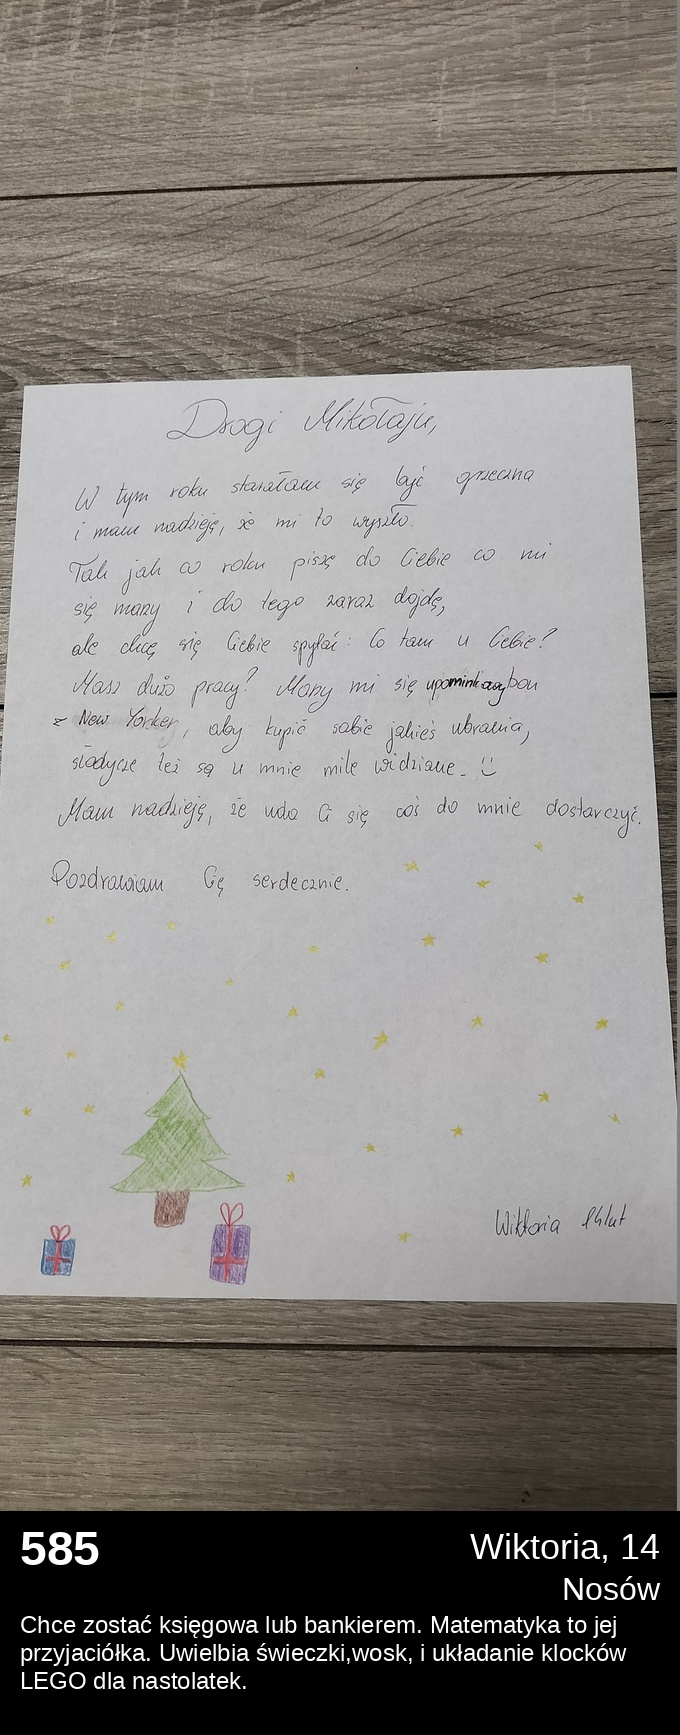 Drogi Mikołaju,
W tym roku starałam się być grzeczna
i mam nadzieję, że mi to wyszło.
Tak jak co roku piszę do Ciebie co mi
się marzy i do tego zaraz dojdę,
ale chcę się Ciebie spytać: Co tam u Cebie?
Masz dużo pracy? Marzy mi się bon
z New Yorker, aby kupić sobie jakieś ubrania,
słodycze też są u mnie mile widziane. :)
Mam nadzieję, że uda Ci się coś do mnie dostarczyć.
Pozdrawiam Cię serdecznie.
Wiktoria 14 lat
585
Wiktoria, 14
Nosów
Chce zostać księgowa lub bankierem. Matematyka to jej
przyjaciółka. Uwielbia świeczki,wosk, i układanie klocków
LEGO dla nastolatek.